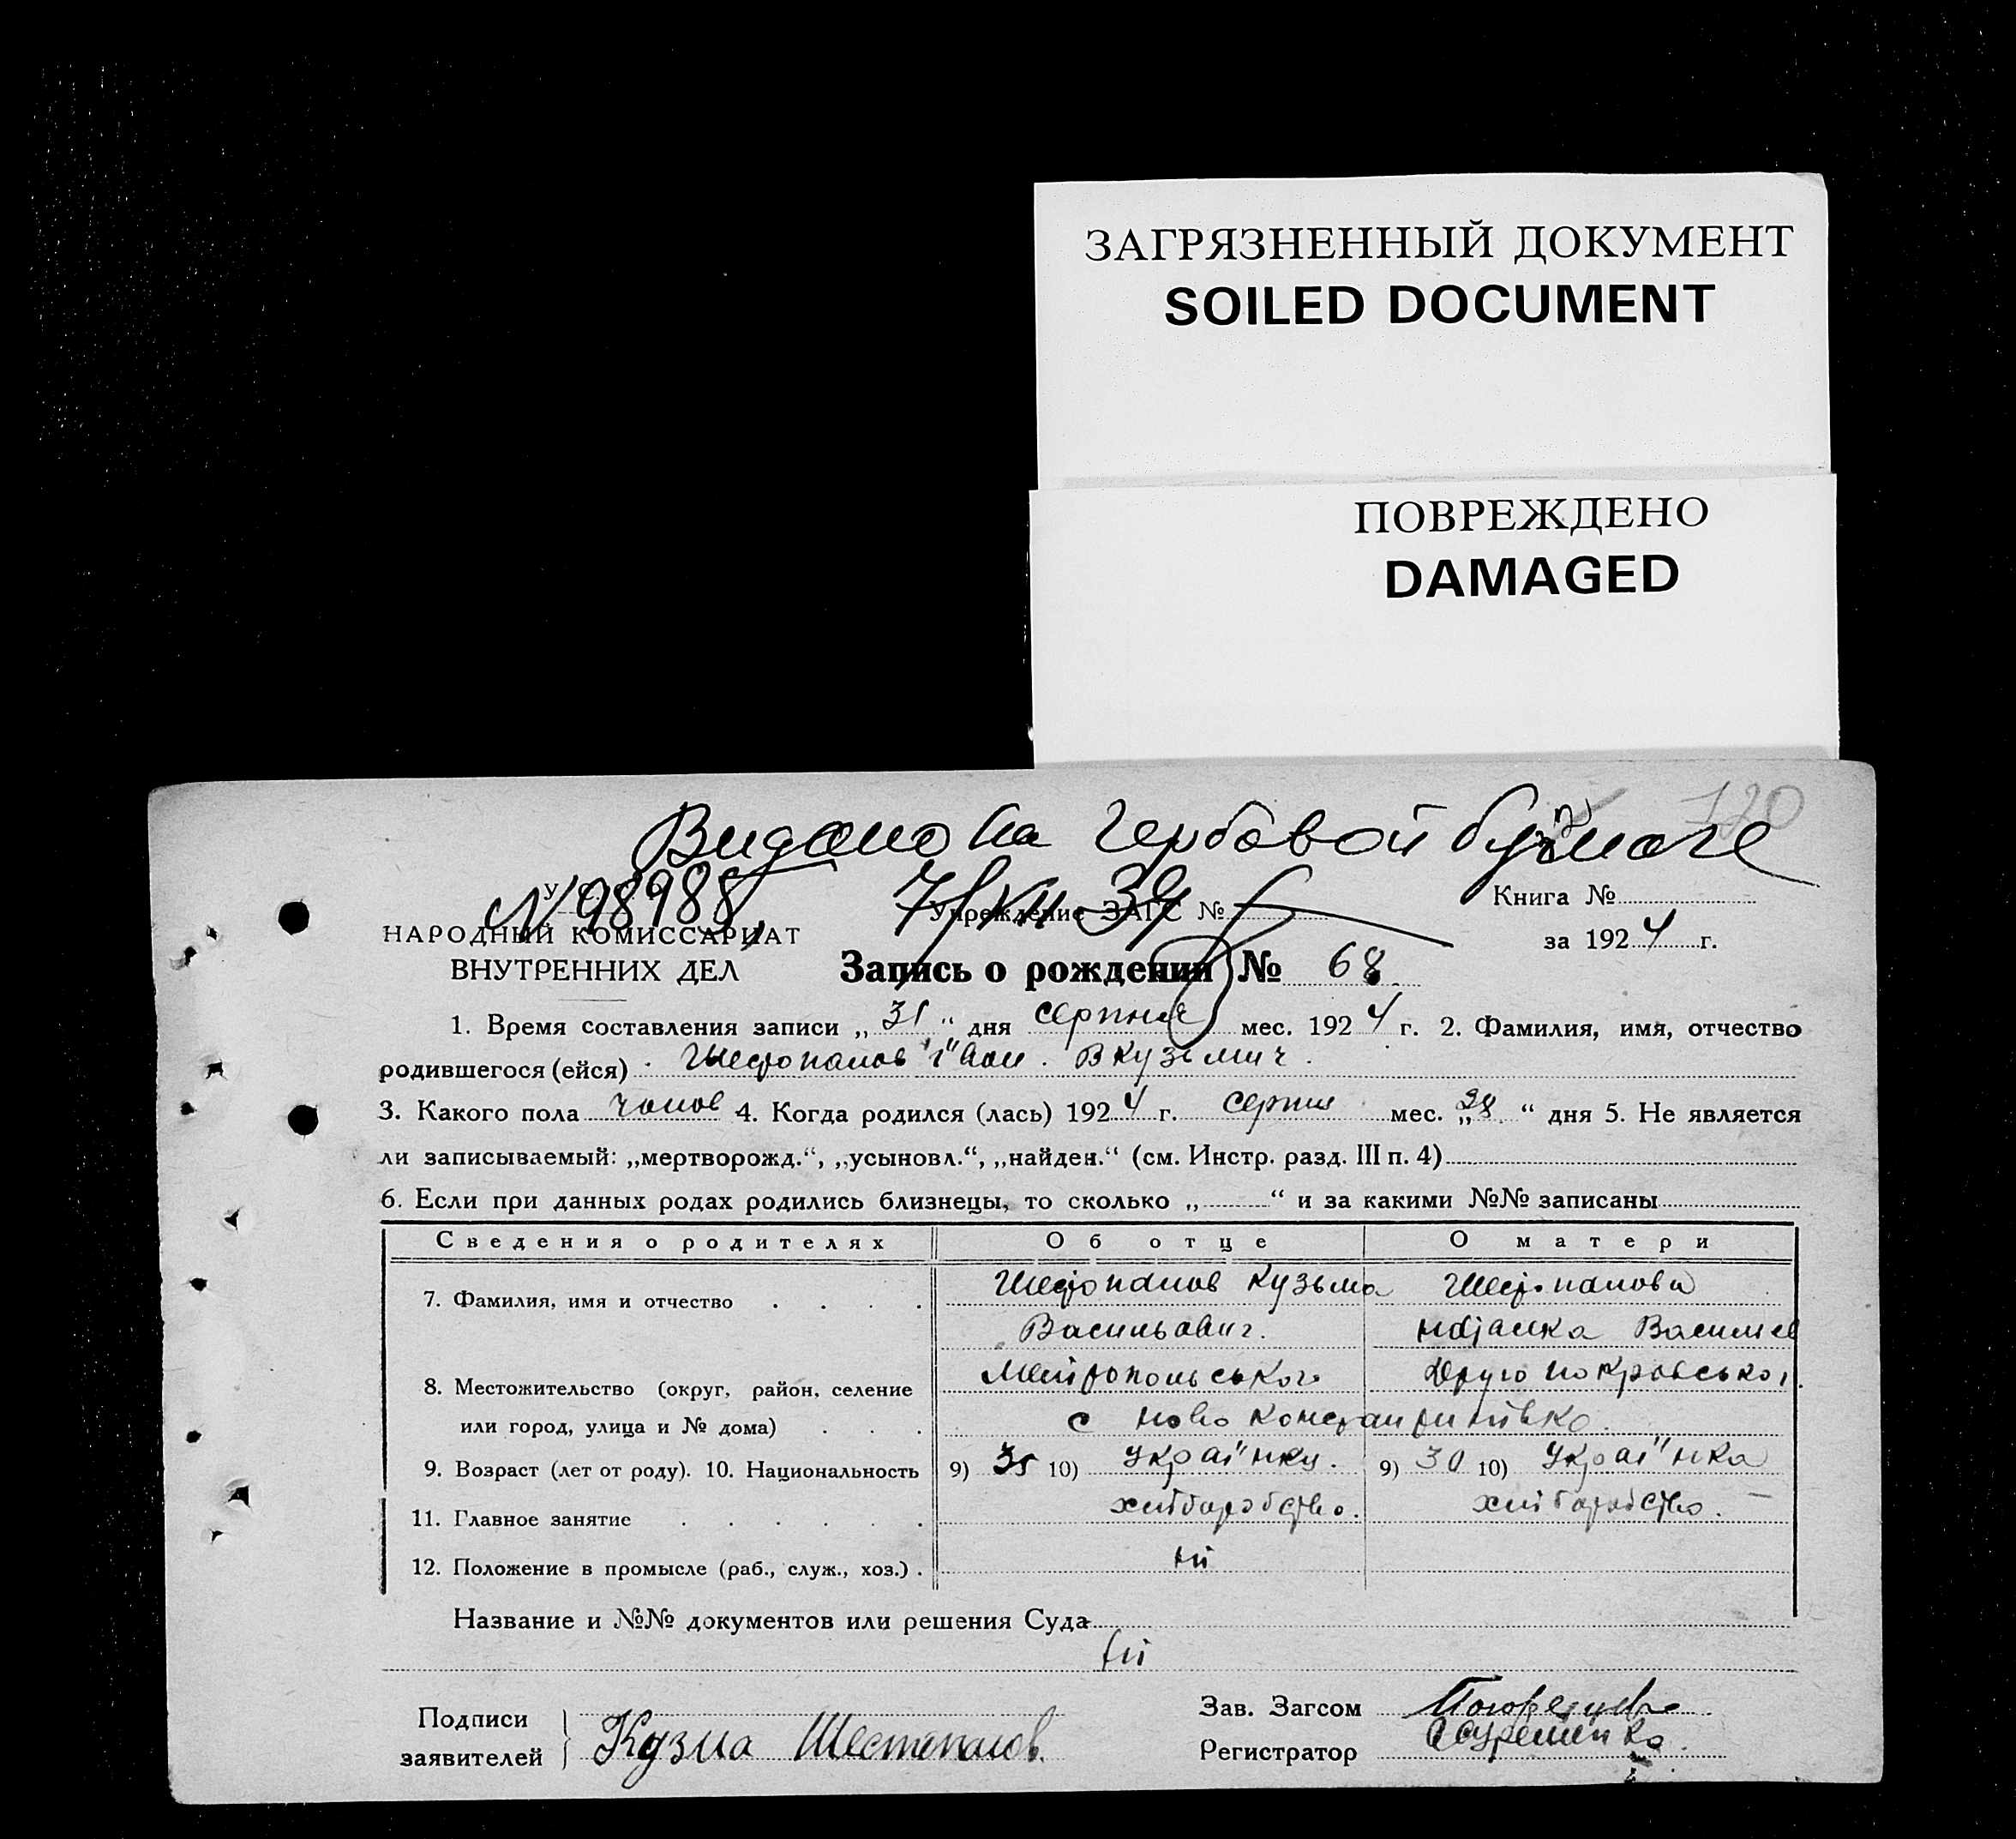 ЗАГРЯЗНЕННЫЙ ДОКУМЕНТ
SOILED DOCUMENT
ПОВРЕЖДЕНО
DAMAGED
120
Видано на гербовой бумаге
№ 98988, 7/XII 39
У
НАРОДНЫЙ КОМИССАРИАТ
ВНУТРЕННИХ ДЕЛ
Учреждение ЗАГС №
Книга №
за 1924 г.
Запись о рождении № 68.
1. Время составления записи „31“ дня серпня мес. 1924 г. 2. Фамилия, имя, отчество
родившегося (ейся) Шестопалов Іван Кузьмич.
3. Какого пола чолов 4. Когда родился (лась) 1924 г. серпня мес. „28“ дня 5. Не является
ли записываемый: „мертворожд.“, „усыновл.“, „найден.“ (см. Инстр. разд. III п. 4)
6. Если при данных родах родились близнецы, то сколько „ “ и за какими №№ записаны
Сведения о родителях Об отце О матери
7. Фамилия, имя и отчество Шестопалов Кузьма Шестопалова
Васильович. Василиев
8. Местожительство (округ, район, селение Мелітопольського Друго покровської
или город, улица и № дома) с Ново Константинівка.
9. Возраст (лет от роду). 10. Национальность 9) 35 10) Українец. 9) 30 10) Українка
11. Главное занятие хліборобство. хліборобство.
12. Положение в промысле (раб., служ., хоз.) ні
Название и №№ документов или решения Суда
ні
Подписи
заявителей Кузма Шестопалов
Зав. Загсом
Регистратор